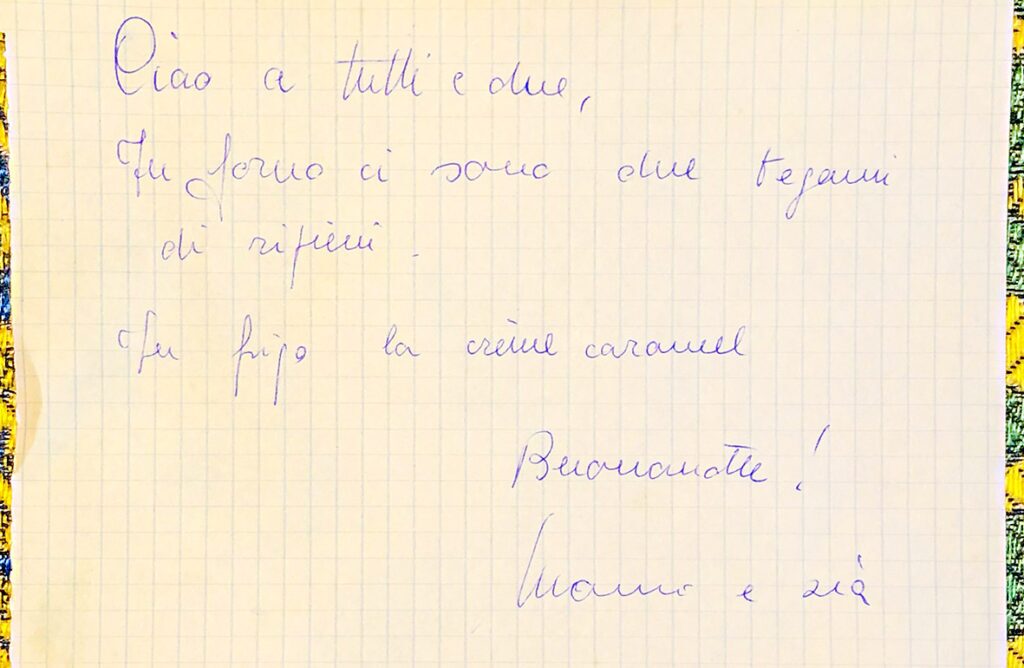 Ciao a tutti e due,
In forno ci sono due tegami
di ripieni.
In frigo la crème caramel
Buonanotte!
Mamo e zià